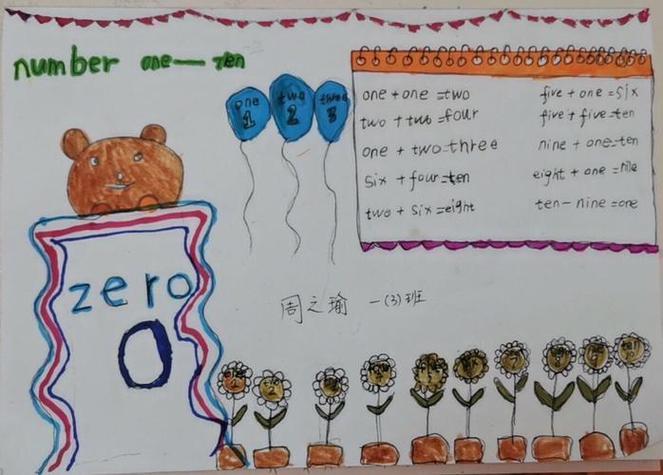 number one — ten
one 1
two 2
three 3
one + one = two
two + two = four
one + two = three
six + four = ten
two + six = eight
five + one = six
five + five = ten
nine + one = ten
eight + one = nine
ten - nine = one
zero
0
周之瑜 一(3)班